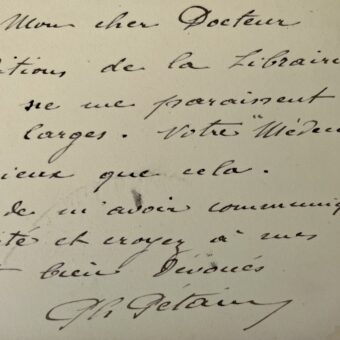 Mon cher Docteur
itions de la Librairi
ne me paraissent
larges. Votre "Médec
ieux que cela.
de m'avoir communiq
té et croyez à mes
t bien Dévoués
Ph Pétain